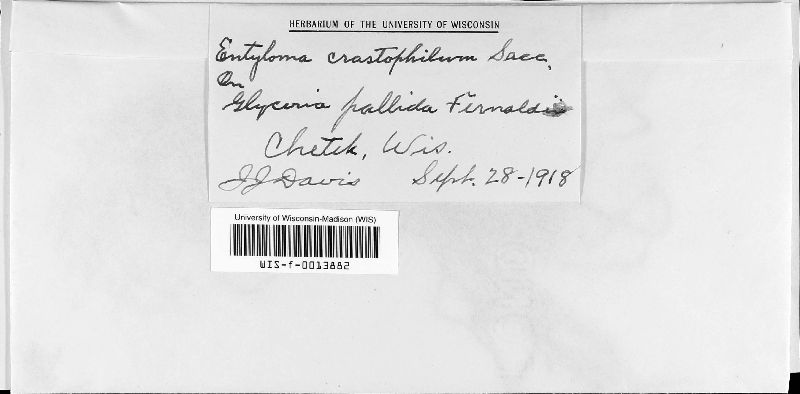 HERBARIUM OF THE UNIVERSITY OF WISCONSIN
Entyloma crastophilum Sacc.
On
Glyceria pallida Fernaldii
Chetek, Wis.
JJ Davis Sept. 28-1918
University of Wisconsin-Madison (WIS)
WIS-f-0013882